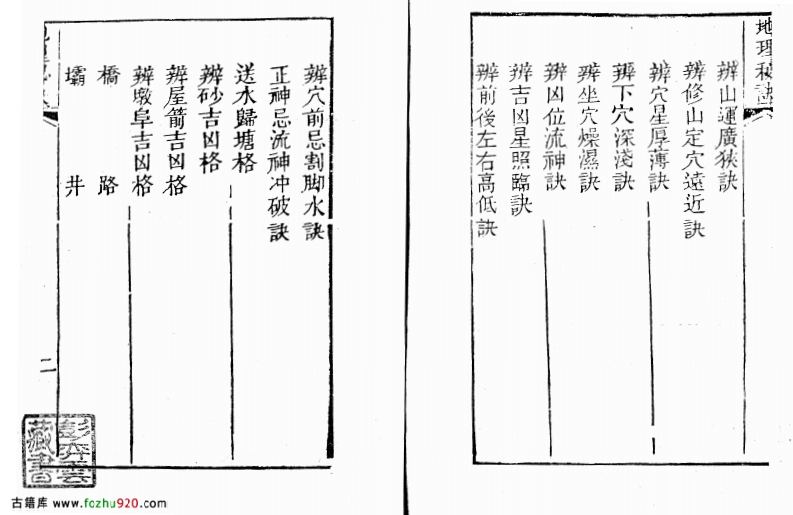 地理秘訣
辨山運廣狹訣
辨修山定穴遠近訣
辨穴星厚薄訣
辨下穴深淺訣
辨坐穴燥濕訣
辨凶位流神訣
辨吉凶星照臨訣
辨前後左右高低訣
辨穴前忌割脚水訣
正神忌流神冲破訣
送水歸塘格
辨砂吉凶格
辨屋箭吉凶格
辨墩阜吉凶格
橋 路
壩 井
二
彭奔雲
藏書
古籍库 www.fozhu920.com